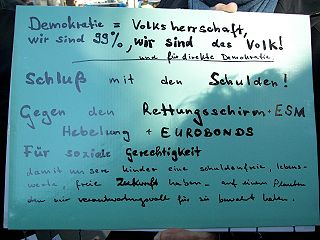 Demokratie = Volksherrschaft,
wir sind 99%, wir sind das Volk!
und für direkte Demokratie.
Schluß mit den Schulden!
Gegen den Rettungsschirm + ESM
Hebelung + EUROBONDS
Für soziale Gerechtigkeit
damit unsere Kinder eine schuldenfreie, lebens-
werte, freie Zukunft haben - auf einem Planeten
den wir verantwortungsvoll für sie bewahrt haben.